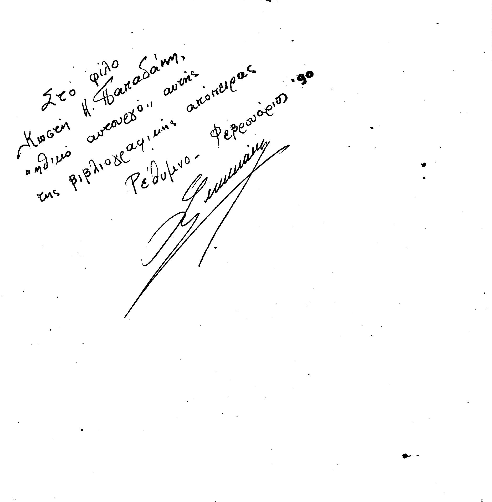 Στό φίλο
Κωστή Η. Παπαδάκη,
"ηθικό αυτουργό,, αυτής
της βιβλιογραφικής απόπειρας
Ρέθυμνο - Φεβρουάριος '90